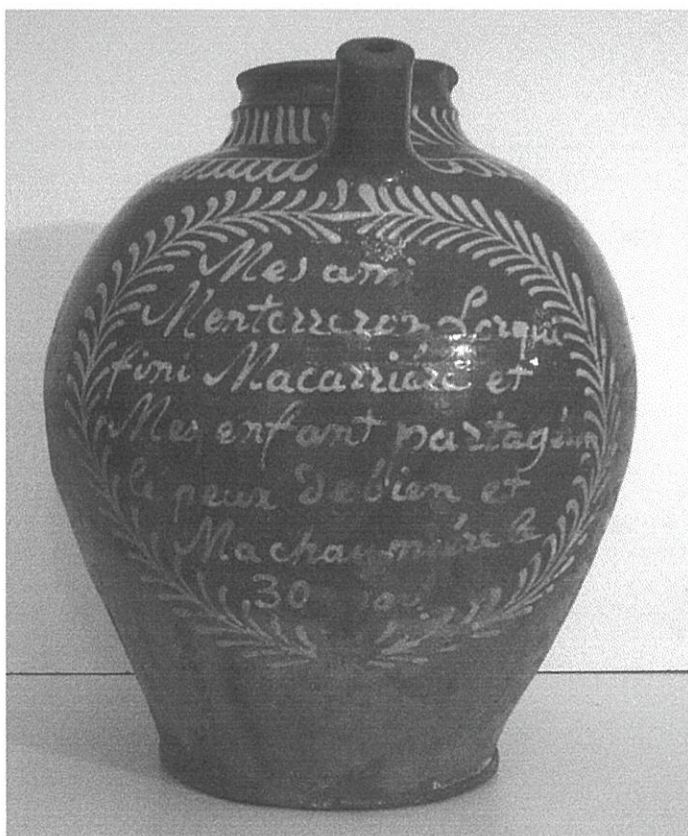 Mes ami
Menterreron Lorqui
fini Macarriére et
Mes enfant
lé peux debien et
Machaumiére
30